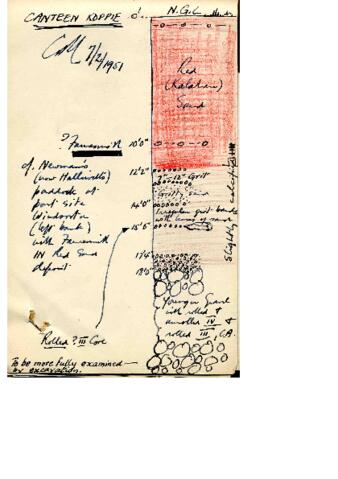 CANTEEN KOPPIE 0' N.G.L.
7/2/1951
Red
(Kalahari)
Sand
? Fauresmith 10'0"
cf. Newman's
(now Halliwells)
paddock at
port site
Windsorton
(left bank)
with Fauresmith
IN Red Sand
deposit
12'2"
12" Grit
Gritty sand
14'0"
Irregular grit bands
with lenses of sand
15'5"
17'4"
18'0"
Slightly calcified
Younger Gravel
with rolled &
unrolled IV &
rolled III, CA.
Rolled ? III Core
To be more fully examined —
by excavation.